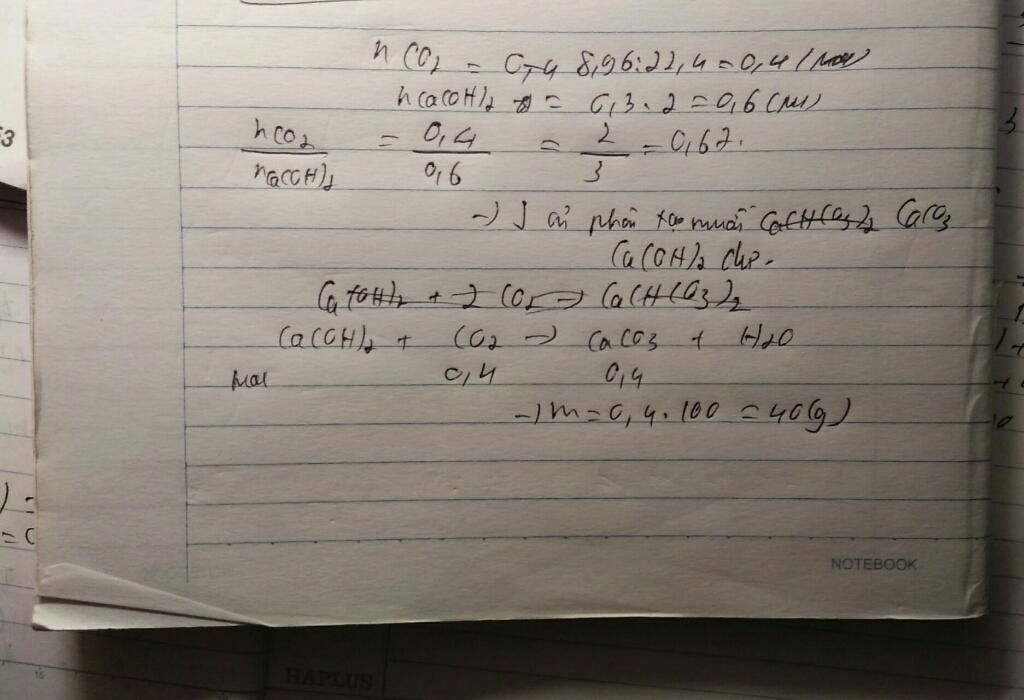 nCO2 = 8,96:22,4 = 0,4 (mol)
nCa(OH)2 = 0,3 . 2 = 0,6 (mol)
nCO2 / nCa(OH)2 = 0,4 / 0,6 = 2 / 3 = 0,67.
-> phản tạo muối Ca(HCO3)2 CaCO3
Ca(OH)2 dư.
Ca(OH)2 + 2 CO2 -> Ca(HCO3)2
Ca(OH)2 + CO2 -> CaCO3 + H2O
Mol 0,4 0,4
-> m = 0,4 . 100 = 40(g)
NOTEBOOK
HAPLUS